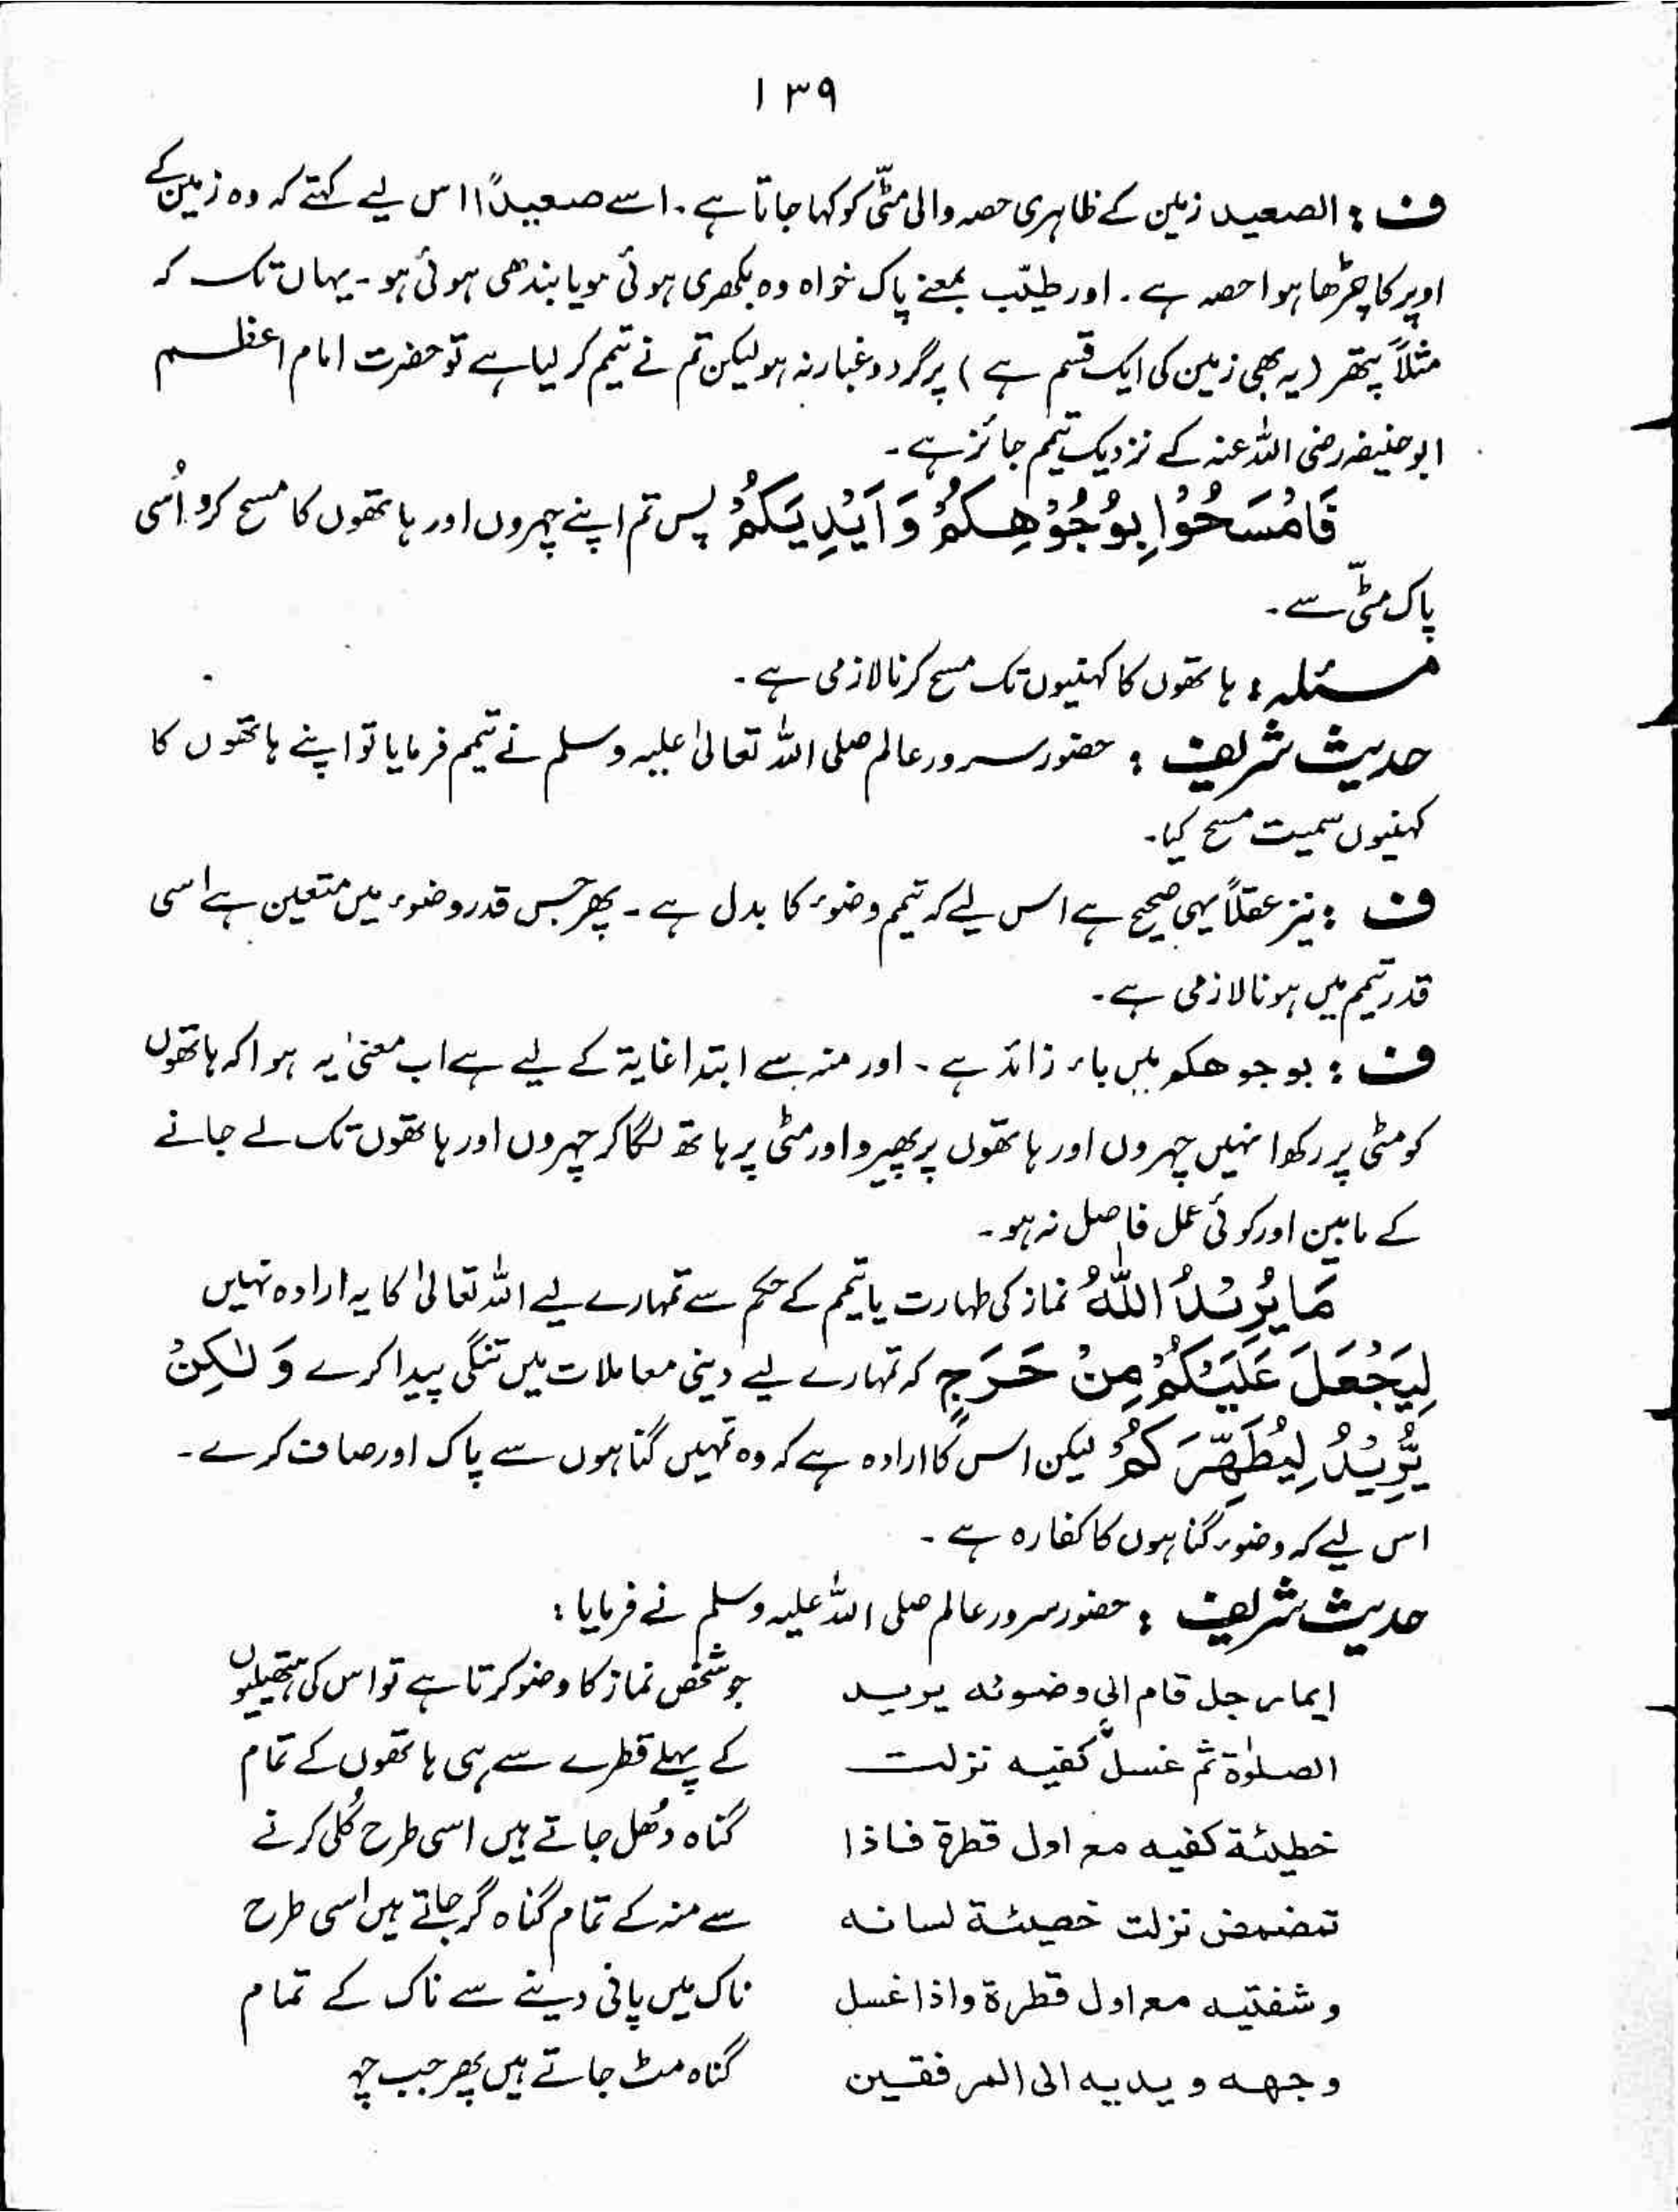 ۱۳۹
ف : الصعید زمین کے ظاہری حصہ والی مٹّی کو کہا جاتا ہے ۔ اسے صعیداً اس لیے کہتے کہ وہ زمین کے
اوپر کا چڑھا ہوا حصہ ہے ۔ اور طیّب بمعنے پاک خواہ وہ بکھری ہوئی ہو یا بندھی ہوئی ہو ۔ یہاں تک کہ
مثلاً پتھر (یہ بھی زمین کی ایک قسم ہے) پر گرد و غبار نہ ہو لیکن تم نے تیمم کر لیا ہے تو حضرت امام اعظم
ابوحنیفہ رضی اللہ عنہ کے نزدیک تیمم جائز ہے ۔
فَامْسَحُوْا بِوُجُوْهِكُمْ وَاَيْدِيَكُمْ پس تم اپنے چہروں اور ہاتھوں کا مسح کرو اُسی
پاک مٹّی سے ۔
مسئلہ : ہاتھوں کا کہنیوں تک مسح کرنا لازمی ہے ۔
حدیث شریف : حضور سرور عالم صلی اللہ تعالیٰ علیہ وسلم نے تیمم فرمایا تو اپنے ہاتھوں کا
کہنیوں سمیت مسح کیا ۔
ف : نیز عقلاً یہی صحیح ہے اس لیے کہ تیمم وضوء کا بدل ہے ۔ پھر جس قدر وضوء میں متعین ہے اسی
قدر تیمم میں ہونا لازمی ہے ۔
ف : بوجوھکم میں باء زائد ہے ۔ اور منہ سے ابتدا غایۃ کے لیے ہے اب معنیٰ یہ ہوا کہ ہاتھوں
کو مٹی پر رکھو انہیں چہروں اور ہاتھوں پر پھیرو اور مٹی پر ہاتھ لگا کر چہروں اور ہاتھوں تک لے جانے
کے مابین اور کوئی عمل فاصل نہ ہو ۔
مَا يُرِيْدُ اللّٰهُ نماز کی طہارت یا تیمم کے حکم سے تمہارے لیے اللہ تعالیٰ کا یہ ارادہ نہیں
لِيَجْعَلَ عَلَيْكُمْ مِنْ حَرَجٍ کہ تمہارے لیے دینی معاملات میں تنگی پیدا کرے وَلٰكِنْ
يُّرِيْدُ لِيُطَهِّرَكُمْ لیکن اس کا ارادہ ہے کہ وہ تمہیں گناہوں سے پاک اور صاف کرے ۔
اس لیے کہ وضوء گناہوں کا کفارہ ہے ۔
حدیث شریف : حضور سرور عالم صلی اللہ علیہ وسلم نے فرمایا :
ایما رجل قام الی وضوئه یرید
الصلوٰة ثم غسل کفیه نزلت
خطیئة کفیه مع اول قطرة فاذا
تمضمض نزلت خصیئة لسانه
وشفتیه مع اول قطرة واذا غسل
وجهه و یدیه الی المرفقین
جو شخص نماز کا وضو کرتا ہے تو اس کی ہتھیلیوں
کے پہلے قطرے سے ہی ہاتھوں کے تمام
گناہ دُھل جاتے ہیں اسی طرح کُلی کرنے
سے منہ کے تمام گناہ گر جاتے ہیں اسی طرح
ناک میں پانی دینے سے ناک کے تمام
گناہ مٹ جاتے ہیں پھر جب چہ